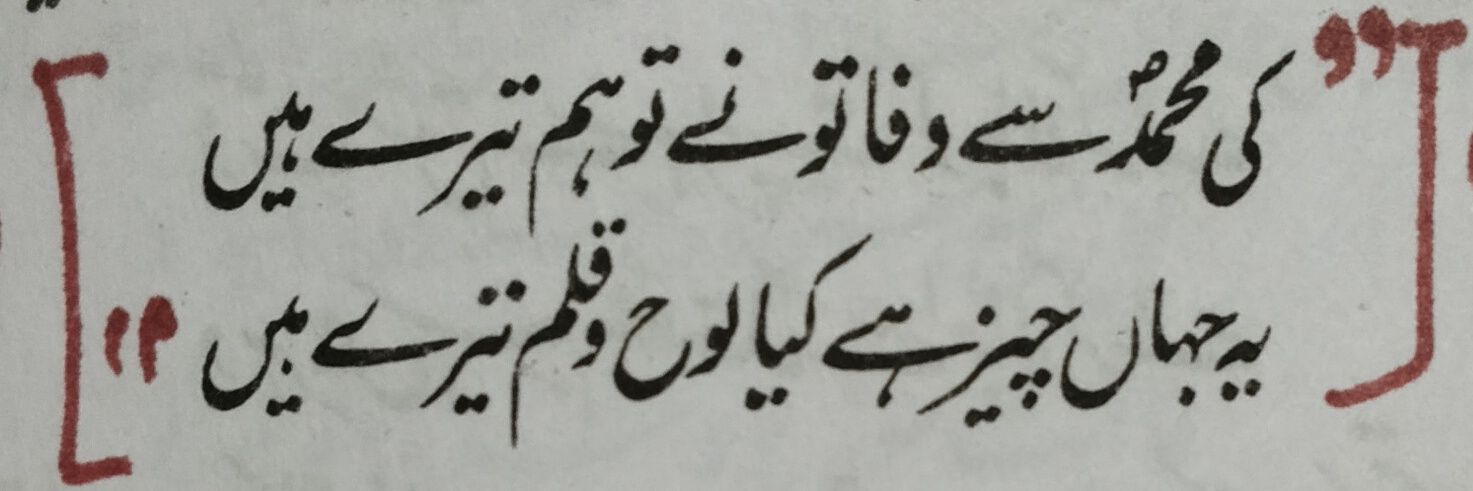 ”کی محمدؐ سے وفا تو نے تو ہم تیرے ہیں
یہ جہاں چیز ہے کیا لوح و قلم تیرے ہیں“